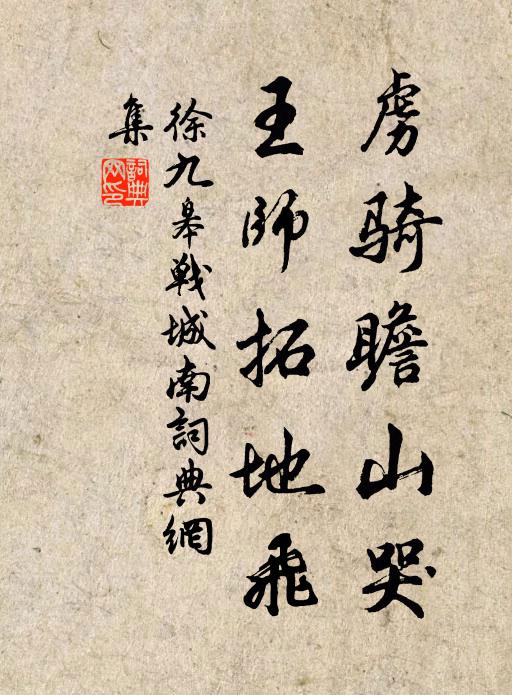 虜騎瞻山哭
王師拓地飛
徐九皋戰城南詞典網
集
詞典網印